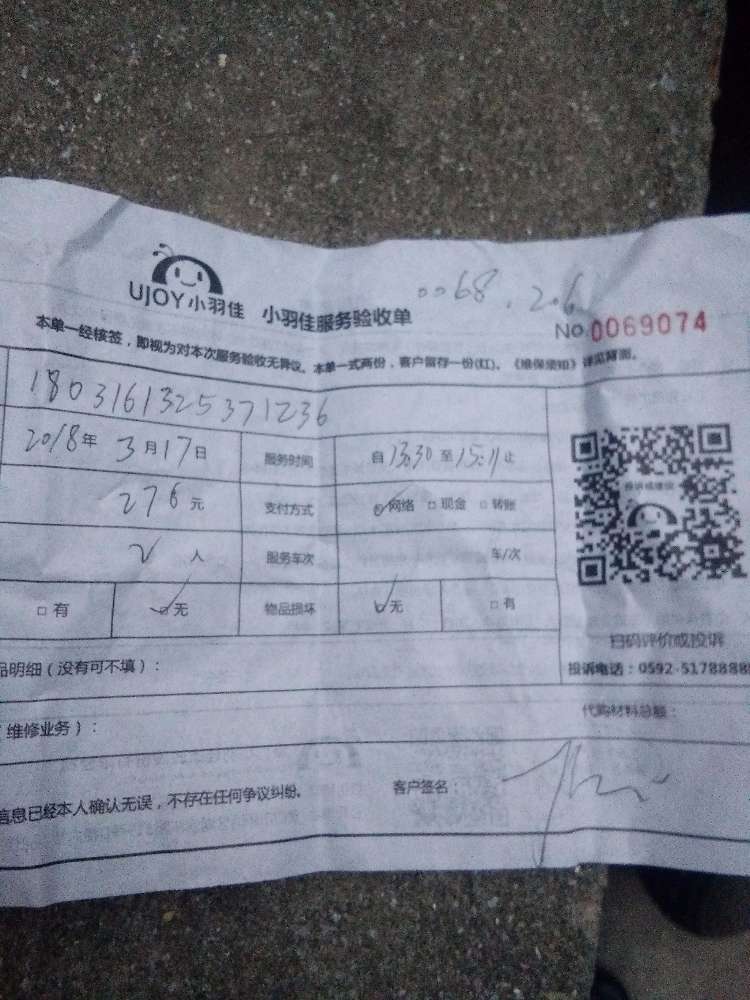 UJOY小羽佳 小羽佳服务验收单 0068.206
No.0069074
本单一经核签，即视为对本次服务验收无异议。本单一式两份，客户留存一份(红)。《维保须知》详见背面。
1803161325371236
2018年3月17日 服务时间 自13:30至15:11止
276元 支付方式 ☑网络 □现金 □转账
2人 服务车次 车/次
□有 ☑无 物品损坏 ☑无 □有
投诉或建议
扫码评价或投诉
投诉电话：0592-5178888
品明细（没有可不填）：
维修业务）： 代购材料总额：
信息已经本人确认无误，不存在任何争议纠纷。 客户签名：